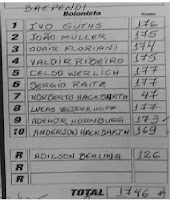 BAEPENDI
Bolonista Pontos
1 IVO GUTHS 176
2 JOÃO MÜLLER 175
3 ODAIR FLORIANI 174
4 VALDIR RIBEIRO 175
5 CELSO WERLICH 177
6 SERGIO RAITZ 177
7 NORBERTO HACKBARTH 47
8 LUCAS 177
9 ADEMOR HORNBURG 173
10 ANDERSON HACKBARTH 169
R ADILSON BEHLING 126
R
R
TOTAL 1746